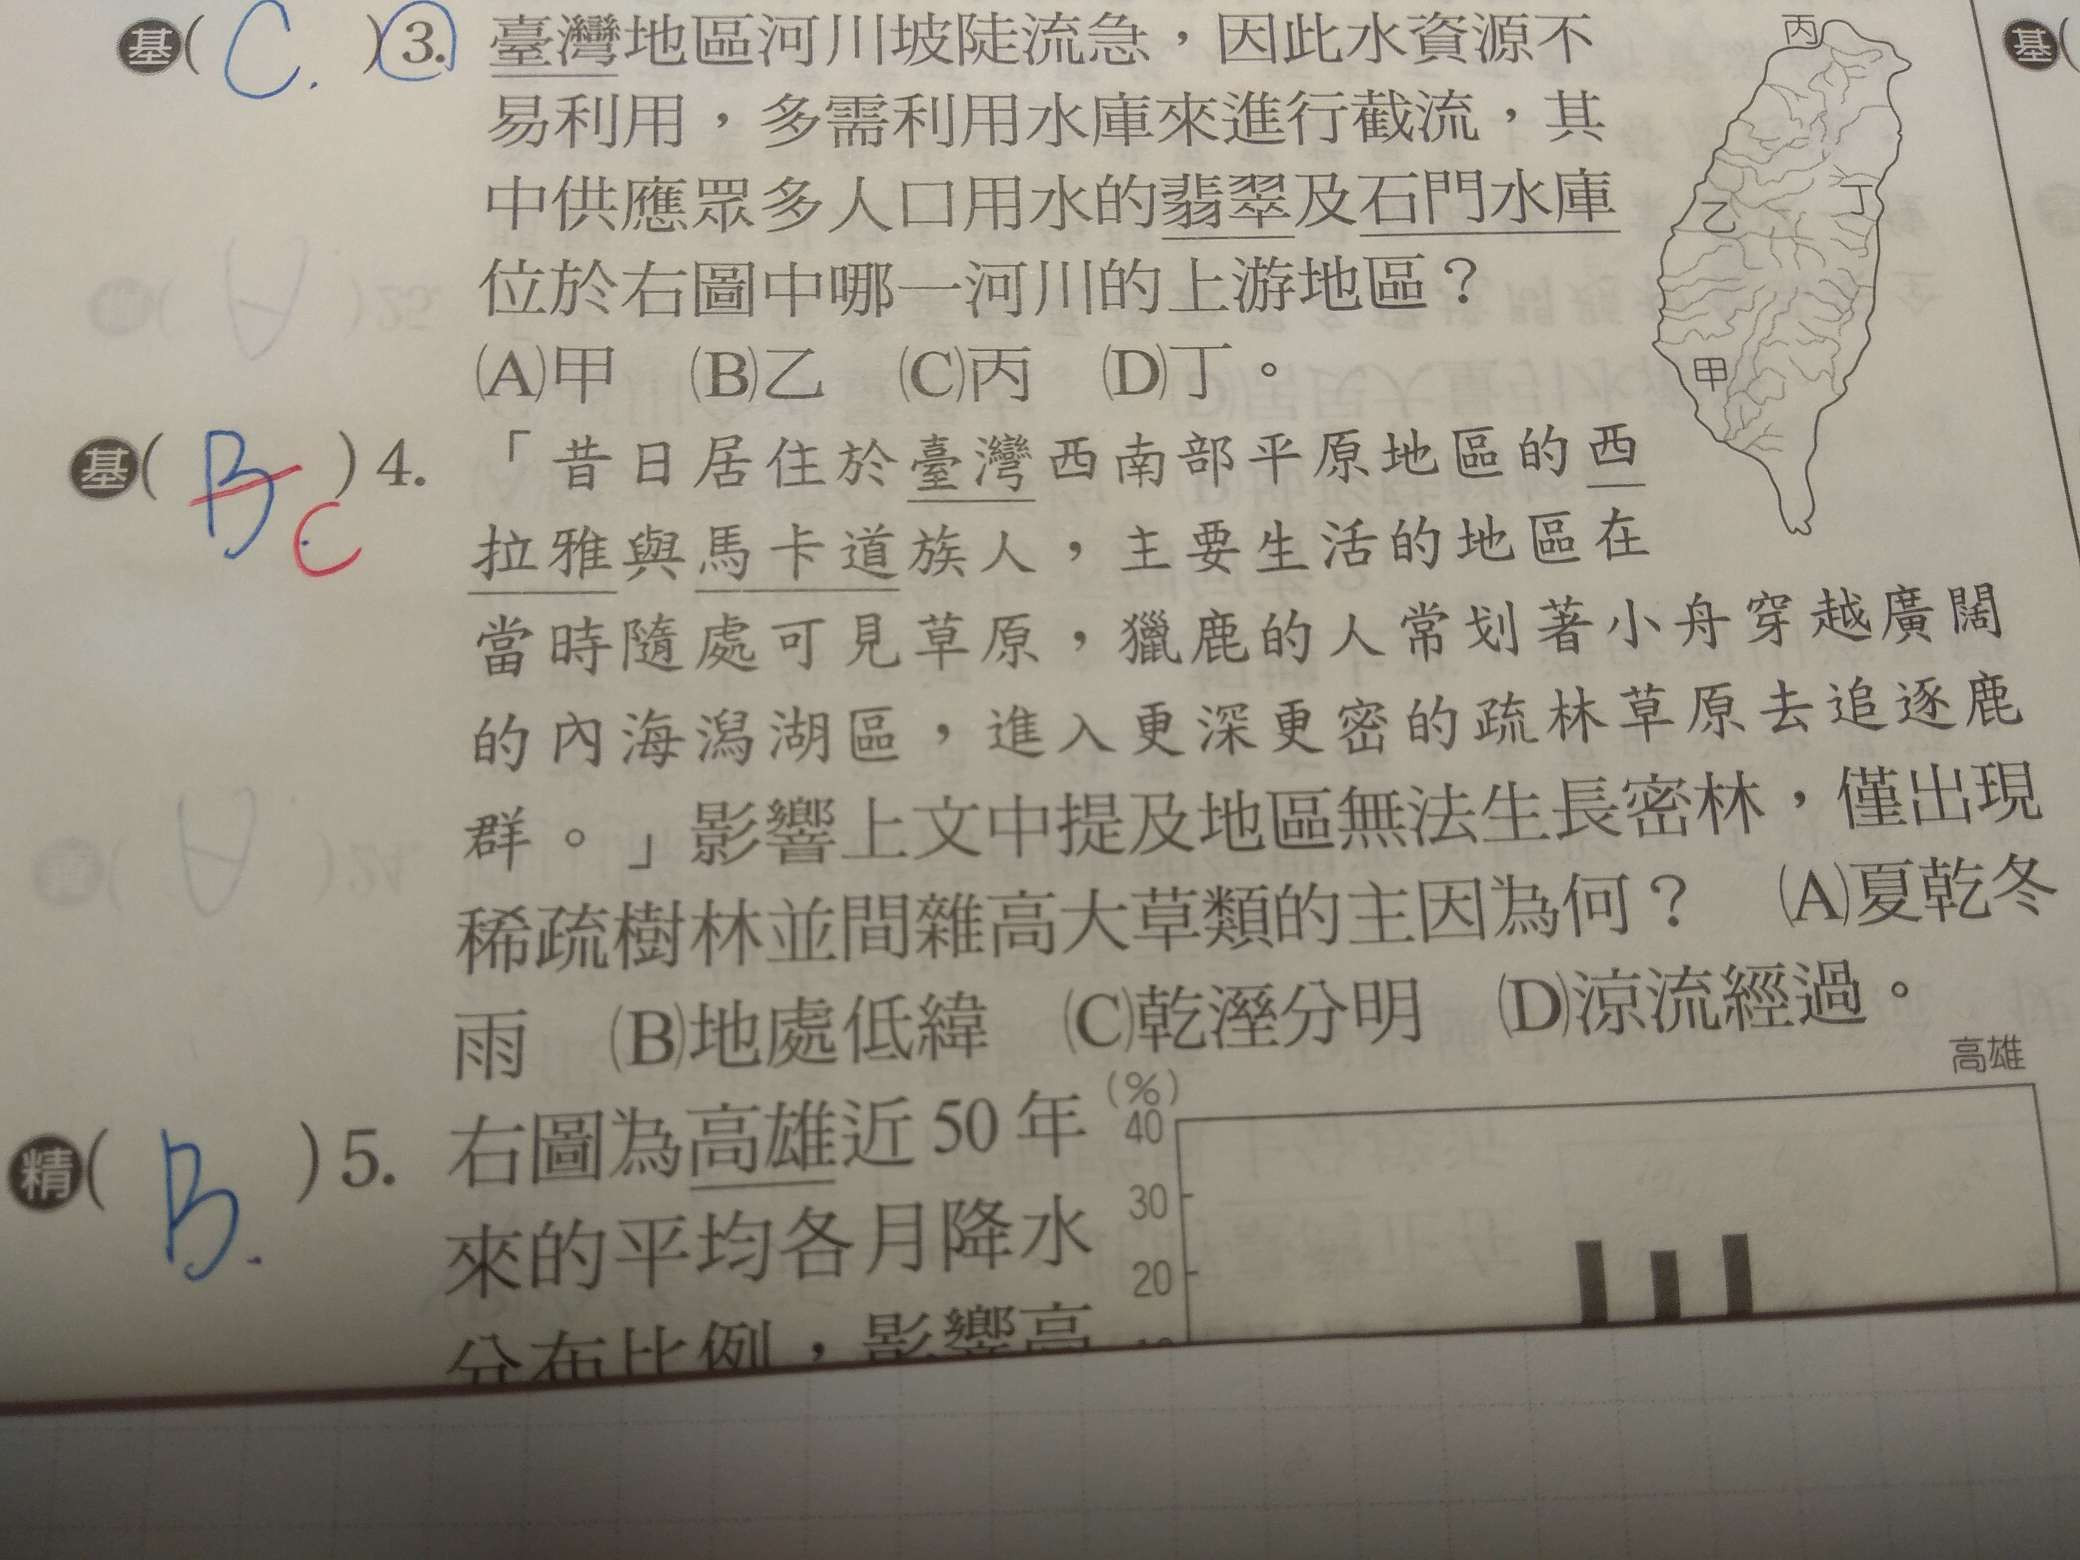 基( C. )3. 臺灣地區河川坡陡流急，因此水資源不
易利用，多需利用水庫來進行截流，其
中供應眾多人口用水的翡翠及石門水庫
位於右圖中哪一河川的上游地區？
(A)甲 (B)乙 (C)丙 (D)丁。
丙
丁
乙
甲
基(
基( B C )4. 「昔日居住於臺灣西南部平原地區的西
拉雅與馬卡道族人，主要生活的地區在
當時隨處可見草原，獵鹿的人常划著小舟穿越廣闊
的內海潟湖區，進入更深更密的疏林草原去追逐鹿
群。」影響上文中提及地區無法生長密林，僅出現
稀疏樹林並間雜高大草類的主因為何？ (A)夏乾冬
雨 (B)地處低緯 (C)乾溼分明 (D)涼流經過。
精( B. )5. 右圖為高雄近50年
來的平均各月降水
分布比例，影響高
高雄
(%)
40
30
20